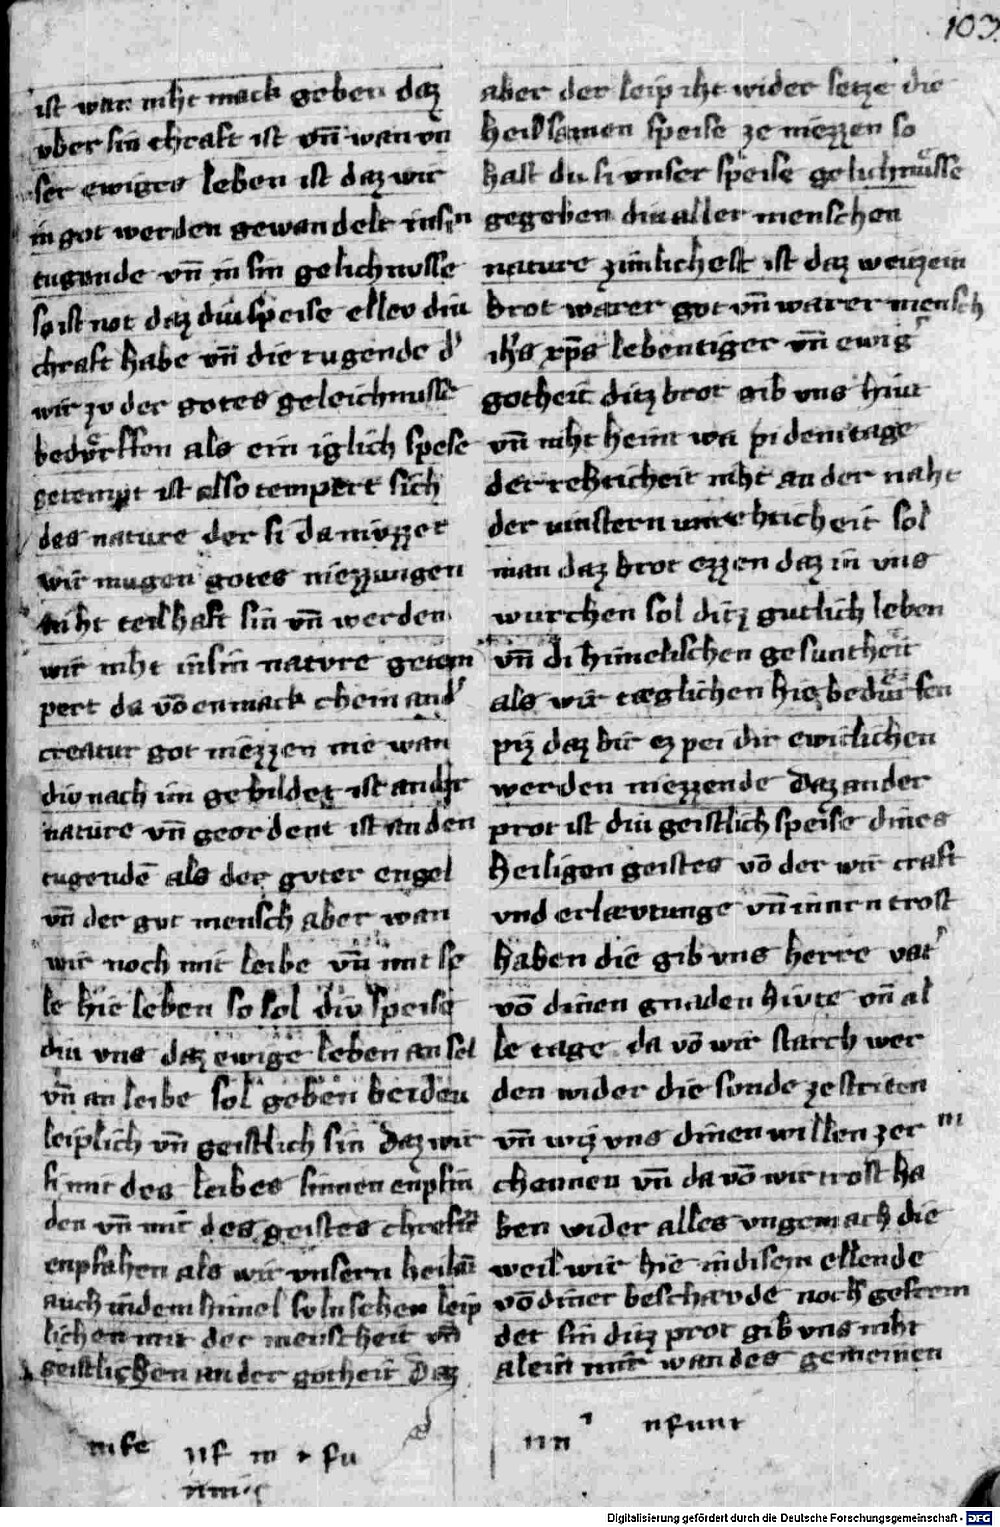 103
ist wan niht mack geben daz
vber sin chraft ist vn̄ wan vn
ser ewiges leben ist daz wir
in got werden gewandelt in sin
tugende vn̄ in sin gelichnusse
so ist not daz diu speise ellev diu
chraft habe vn̄ die tugende d'
wir zv der gotes geleichnusse
bedvrffen als ein iglich speise
getempt ist also tempert sich
des nature der si da nivzzet
wir mugen gotes niezzungen
niht teilhaft sin vn̄ werden
wir niht in sin natvre getem
pert da vō en mack chein and'
creatur got niezzen nie wan
div nach im gebildet ist an der
nature vn̄ geordent ist an den
tugendē als der gvter engel
vn̄ der gvt mensch aber wan
wir noch mit leibe vn̄ mit se
le hie leben so sol div speise
diu vns daz ewige leben an sel
vn̄ an leibe sol geben beideu
leiplich vn̄ geistlich sin Daz wir
si mit des leibes sinnen enpfin
den vn̄ mit des geistes chrefte
enpfahen als wir vnsern heilāt
auch in dem himel suln sehen leip
lichen mit der menscheit vn̄
geistlichen an der gotheit Daz
aber der leip iht wider setze die
heilsamen speise ze niezzen so
hast du si vnser speise gelichnusse
gegeben diu aller menschen
nature zimlichest ist daz weizein
brot warer got vn̄ warer mensch
ih's xp̄s lebentiger vn̄ ewig'
gotheit ditz brot gib vns hiut
vn̄ niht heint wa pi dem tage
der rehticheit niht an der naht
der vinstern vnrehticheit sol
man daz brot ezzen daz in vns
wurchen sol ditz gutlich leben
vn̄ di himelischen gesuntheit
als wir tæglichen hie bedurfen
piz daz bir ez pei dir ewiclichen
werden niezzende Daz ander
prot ist diu geistlich speise dines
heiligen geistes vō der wir craft
vnd erlævtunge vn̄ innern trost
haben die gib vns herre vat'
vō dinen gnaden hivte vn̄ al
le tage da vō wir starch wer
den wider die sunde ze striten
vn̄ wiz vns dinen willen zer
chennen vn̄ da vō wir trost ha
ben wider alles vngemach die
weil wir hie in disem ellende
vō diner beschævde noch gefrem
det sin ditz prot gib vns niht
alein mir wan des gemeinen